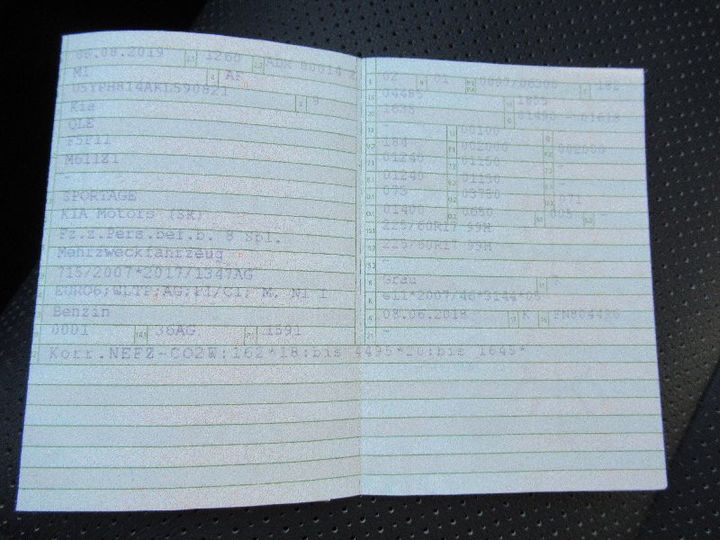 06.08.2019 1260 ADK 00014 2
M1 4 AF
U5YPH814AKL590821
Kia 9
QLE
F5P11
M611Z1
-
SPORTAGE
KIA Motors (SK)
Fz.z.Pers.bef.b. 8 Spl.
Mehrzweckfahrzeug
715/2007*2017/1347AG
EURO6;WLTP;AG;PI/CI; M, N1 I
Benzin
0001 36AG 1591
Korr.NEFZ-CO2W:162*18:bis 4495*20:bis 1645*
02 01
04485 1855
1635
- 00100 -
184 002000 002000
01240 01150 -
01240 01150 -
075 03750 071
01400 0650 005 -
225/60R17 99H
225/60R17 99H
-
Grau
e11*2007/46*3144*06
08.06.2018 K
-